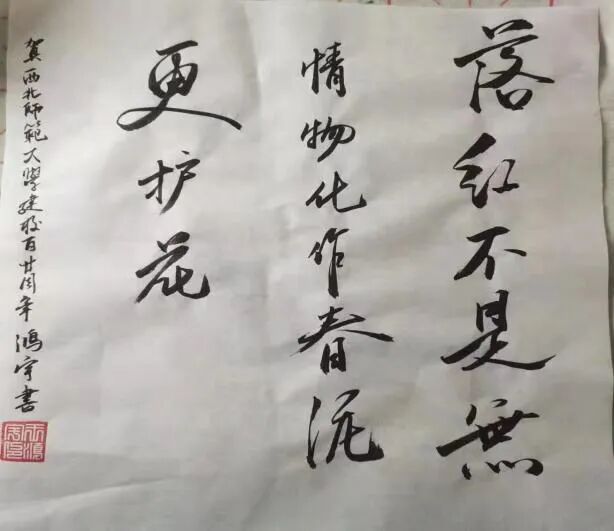 落红不是無
情物化作春泥
更护花
賀西北师範大學建校百廿周年鴻宇書